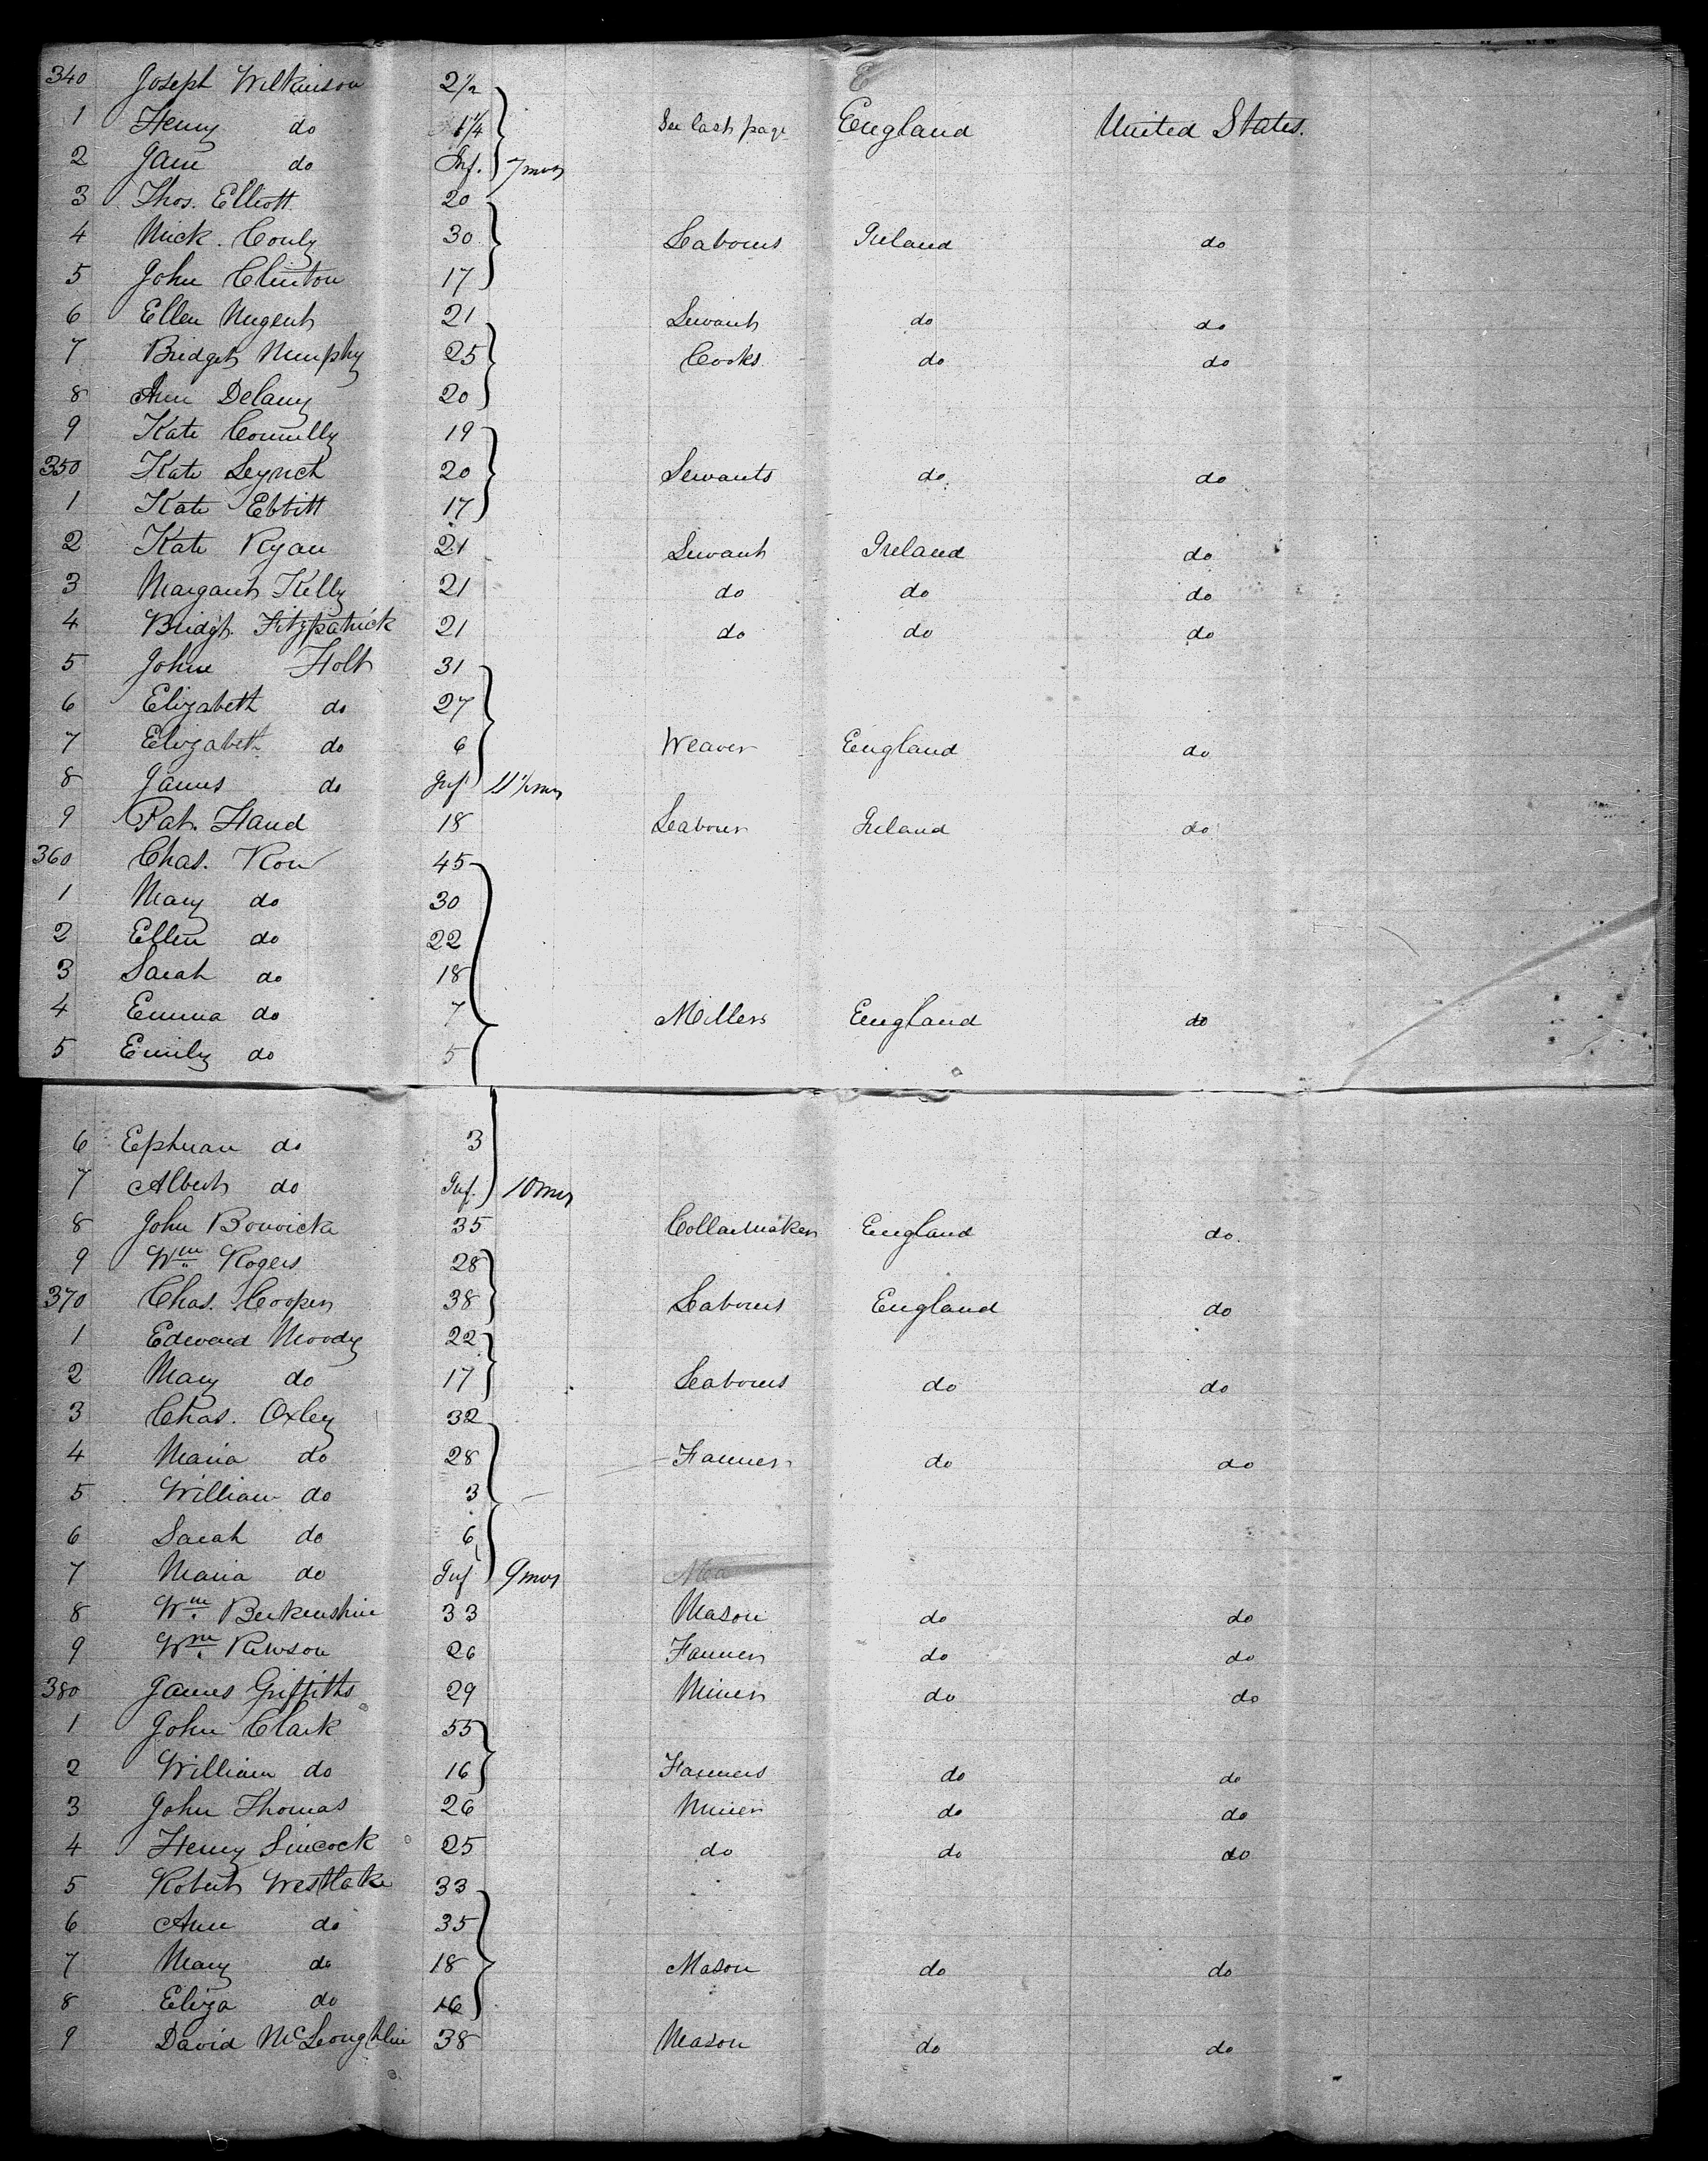 340 Joseph Wilkinson 2½
1 Henry do 1¼ See last page England United States.
2 Jane do Inf. 7 mos
3 Thos. Elliott 20
4 Mick. Conly 30 Labourers Ireland do
5 John Clinton 17
6 Ellen Nugent 21 Servant do do
7 Bridget Murphy 25 Cooks do do
8 Ann Delany 20
9 Kate Connelly 19
350 Kate Leynch 20 Servants do do
1 Kate Ebbitt 17
2 Kate Ryan 21 Servant Ireland do
3 Margaret Kelly 21 do do do
4 Bridgt. Fitzpatrick 21 do do do
5 John Holt 31
6 Elizabeth do 27
7 Elizabeth do 6 Weaver England do
8 James do Inf 11½ mos
9 Pat. Hand 18 Labourer Ireland do
360 Chas. Row 45
1 Mary do 30
2 Ellen do 22
3 Sarah do 18
4 Emma do 7 Miller England do
5 Emily do 5
6 Ephraim do 3
7 Albert do Inf. 10 mos
8 John Bowick 35 Collarmaker England do.
9 Wm. Rogers 28
370 Chas. Cooper 38 Labourers England do
1 Edward Moody 22
2 Mary do 17 Labourers do do
3 Chas. Oxley 32
4 Maria do 28 Farmer do do
5 William do 3
6 Sarah do 6
7 Maria do Inf 9 mos
8 Wm. Berkenshire 33 Mason do do
9 Wm. Rewson 26 Farmer do do
380 James Griffiths 29 Miner do do
1 John Clark 55
2 William do 16 Farmers do do
3 John Thomas 26 Miner do do
4 Henry Sincock 25 do do do
5 Robert Westlake 33
6 Ann do 35
7 Mary do 18 Mason do do
8 Eliza do 16
9 David McLoughlin 38 Mason do do